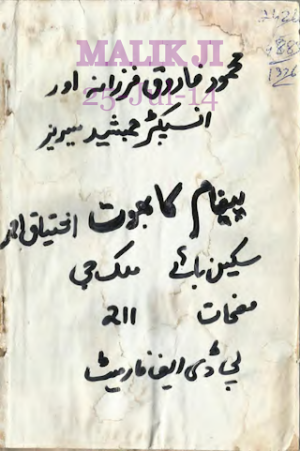 MALIK JI
23-Jul-14
محمود فاروق فرزانہ اور
انسپکٹر جمشید سیریز
پیغام کا بھوت اشتیاق احمد
سکین بائے ملک جی
صفحات 211
پی ڈی ایف فارمیٹ
1326